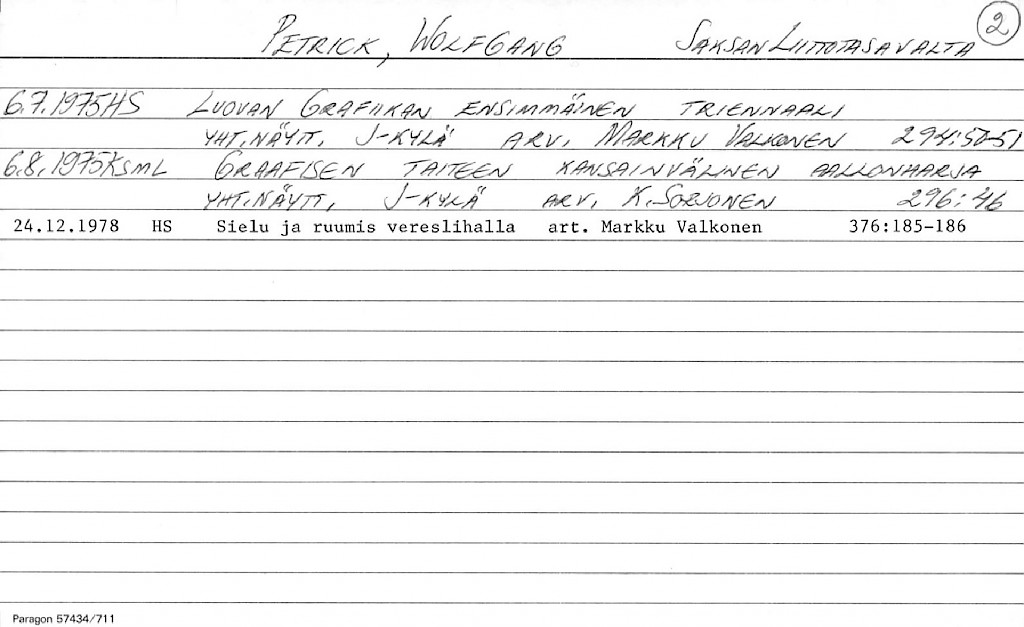 PETRICK, WOLFGANG SAKSAN LIITTOTASAVALTA 2
6.7.1975 HS LUOVAN GRAFIIKAN ENSIMMÄINEN TRIENNAALI
YHT.NÄYTT, J-KYLÄ ARV. MARKKU VALKONEN 294:50-51
6.8.1975 KSML GRAAFISEN TAITEEN KANSAINVÄLINEN AALLONHARJA
YHT.NÄYTT, J-KYLÄ ARV. K.SORJONEN 296:46
24.12.1978 HS Sielu ja ruumis vereslihalla art. Markku Valkonen 376:185-186
Paragon 57434/711